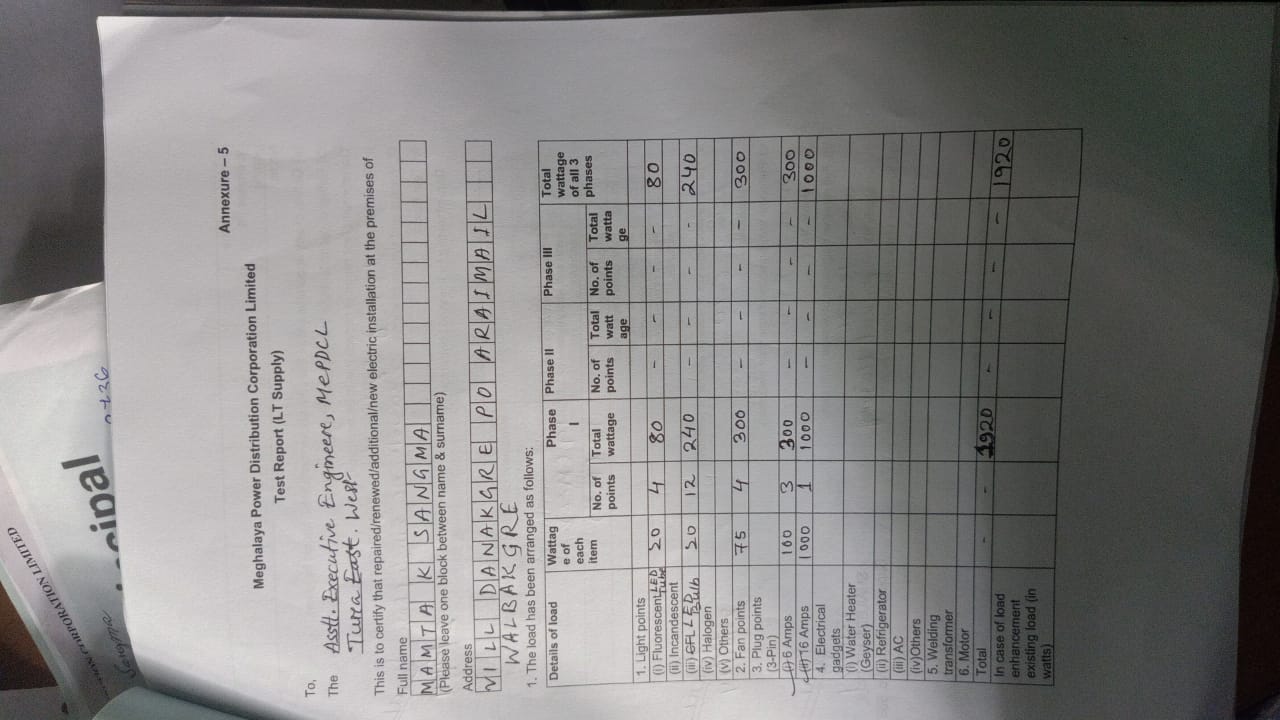 CORPORATION LIMITED
Annexure – 5
Meghalaya Power Distribution Corporation Limited
Test Report (LT Supply)
To,
The Asstt. Executive Engineere, MePDCL
Turra East. West
This is to certify that repaired/renewed/additional/new electric installation at the premises of
Full name
MAMTA K SANGMA
(Please leave one block between name & surname)
Address
VILL DANAKGRE PO ARAIMAIL
WALBAKGRE
1. The load has been arranged as follows:
Details of load Wattag e of each item Phase I Phase II Phase III Total wattage of all 3 phases
No. of points Total wattage No. of points Total watt age No. of points Total watta ge
1. Light points
(i) Fluorescent LED Tube 20 4 80 - - - - 80
(ii) Incandescent
(iii) CFL LED Bulb 20 12 240 - - - - 240
(iv) Halogen
(v) Others
2. Fan points 75 4 300 - - - - 300
3. Plug points
(3-Pin)
(i) 6 Amps 100 3 300 - - - - 300
(ii) 16 Amps 1000 1 1000 - - - - 1000
4. Electrical
gadgets
(i) Water Heater
(Geyser)
(ii) Refrigerator
(iii) AC
(iv)Others
5. Welding
transformer
6. Motor
Total - - 1920 - - - - 1920
In case of load
enhancement
existing load (in
watts)